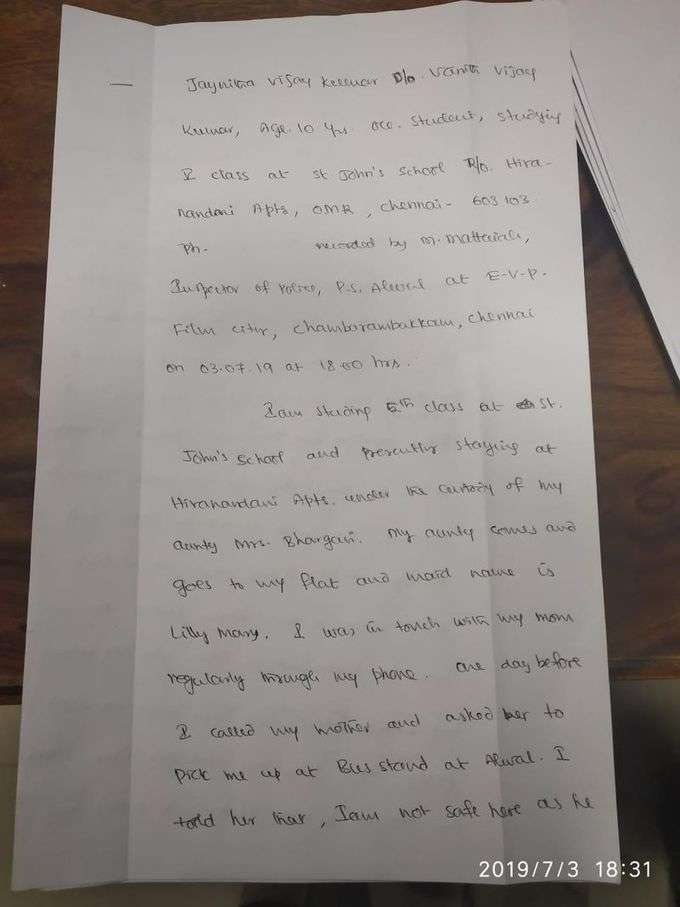 Jaynitha Vijay Kumar D/o. Vanith Vijay
Kumar, Age. 10 Yrs. occ. Student, studying
V class at St John's School R/o. Hira-
nandani Apts, OMR, Chennai - 603 103
Ph. recorded by
Inspector of Police, P.S. Alwal at E-V-P.
Film city, Chambarambakkam, Chennai
on 03.07.19 at 18.00 hrs.
I am studing 5th class at St.
John's School and presently staying at
Hiranandani Apts. under the custody of my
aunty Mrs. Bhargavi. My aunty comes and
goes to my flat and maid name is
Lilly Mary. I was in touch with my mom
regularly through my phone. one day before
I called my mother and asked her to
pick me up at Bus stand at Alwal. I
told her that, I am not safe here as he
2019/7/3 18:31